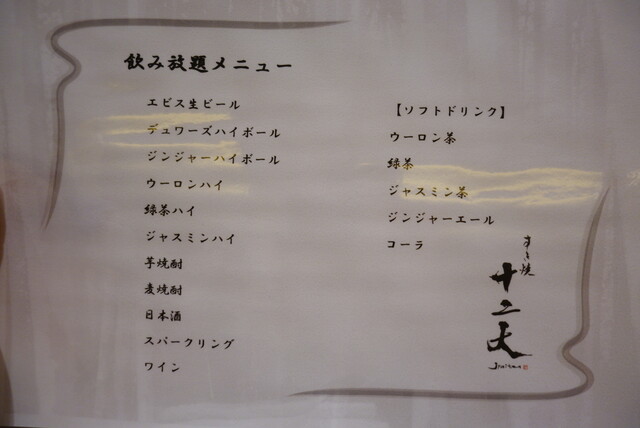 飲み放題メニュー
エビス生ビール
デュワーズハイボール
ジンジャーハイボール
ウーロンハイ
緑茶ハイ
ジャスミンハイ
芋焼酎
麦焼酎
日本酒
スパークリング
ワイン
【ソフトドリンク】
ウーロン茶
緑茶
ジャスミン茶
ジンジャーエール
コーラ
すき焼
十二天
Jouiten